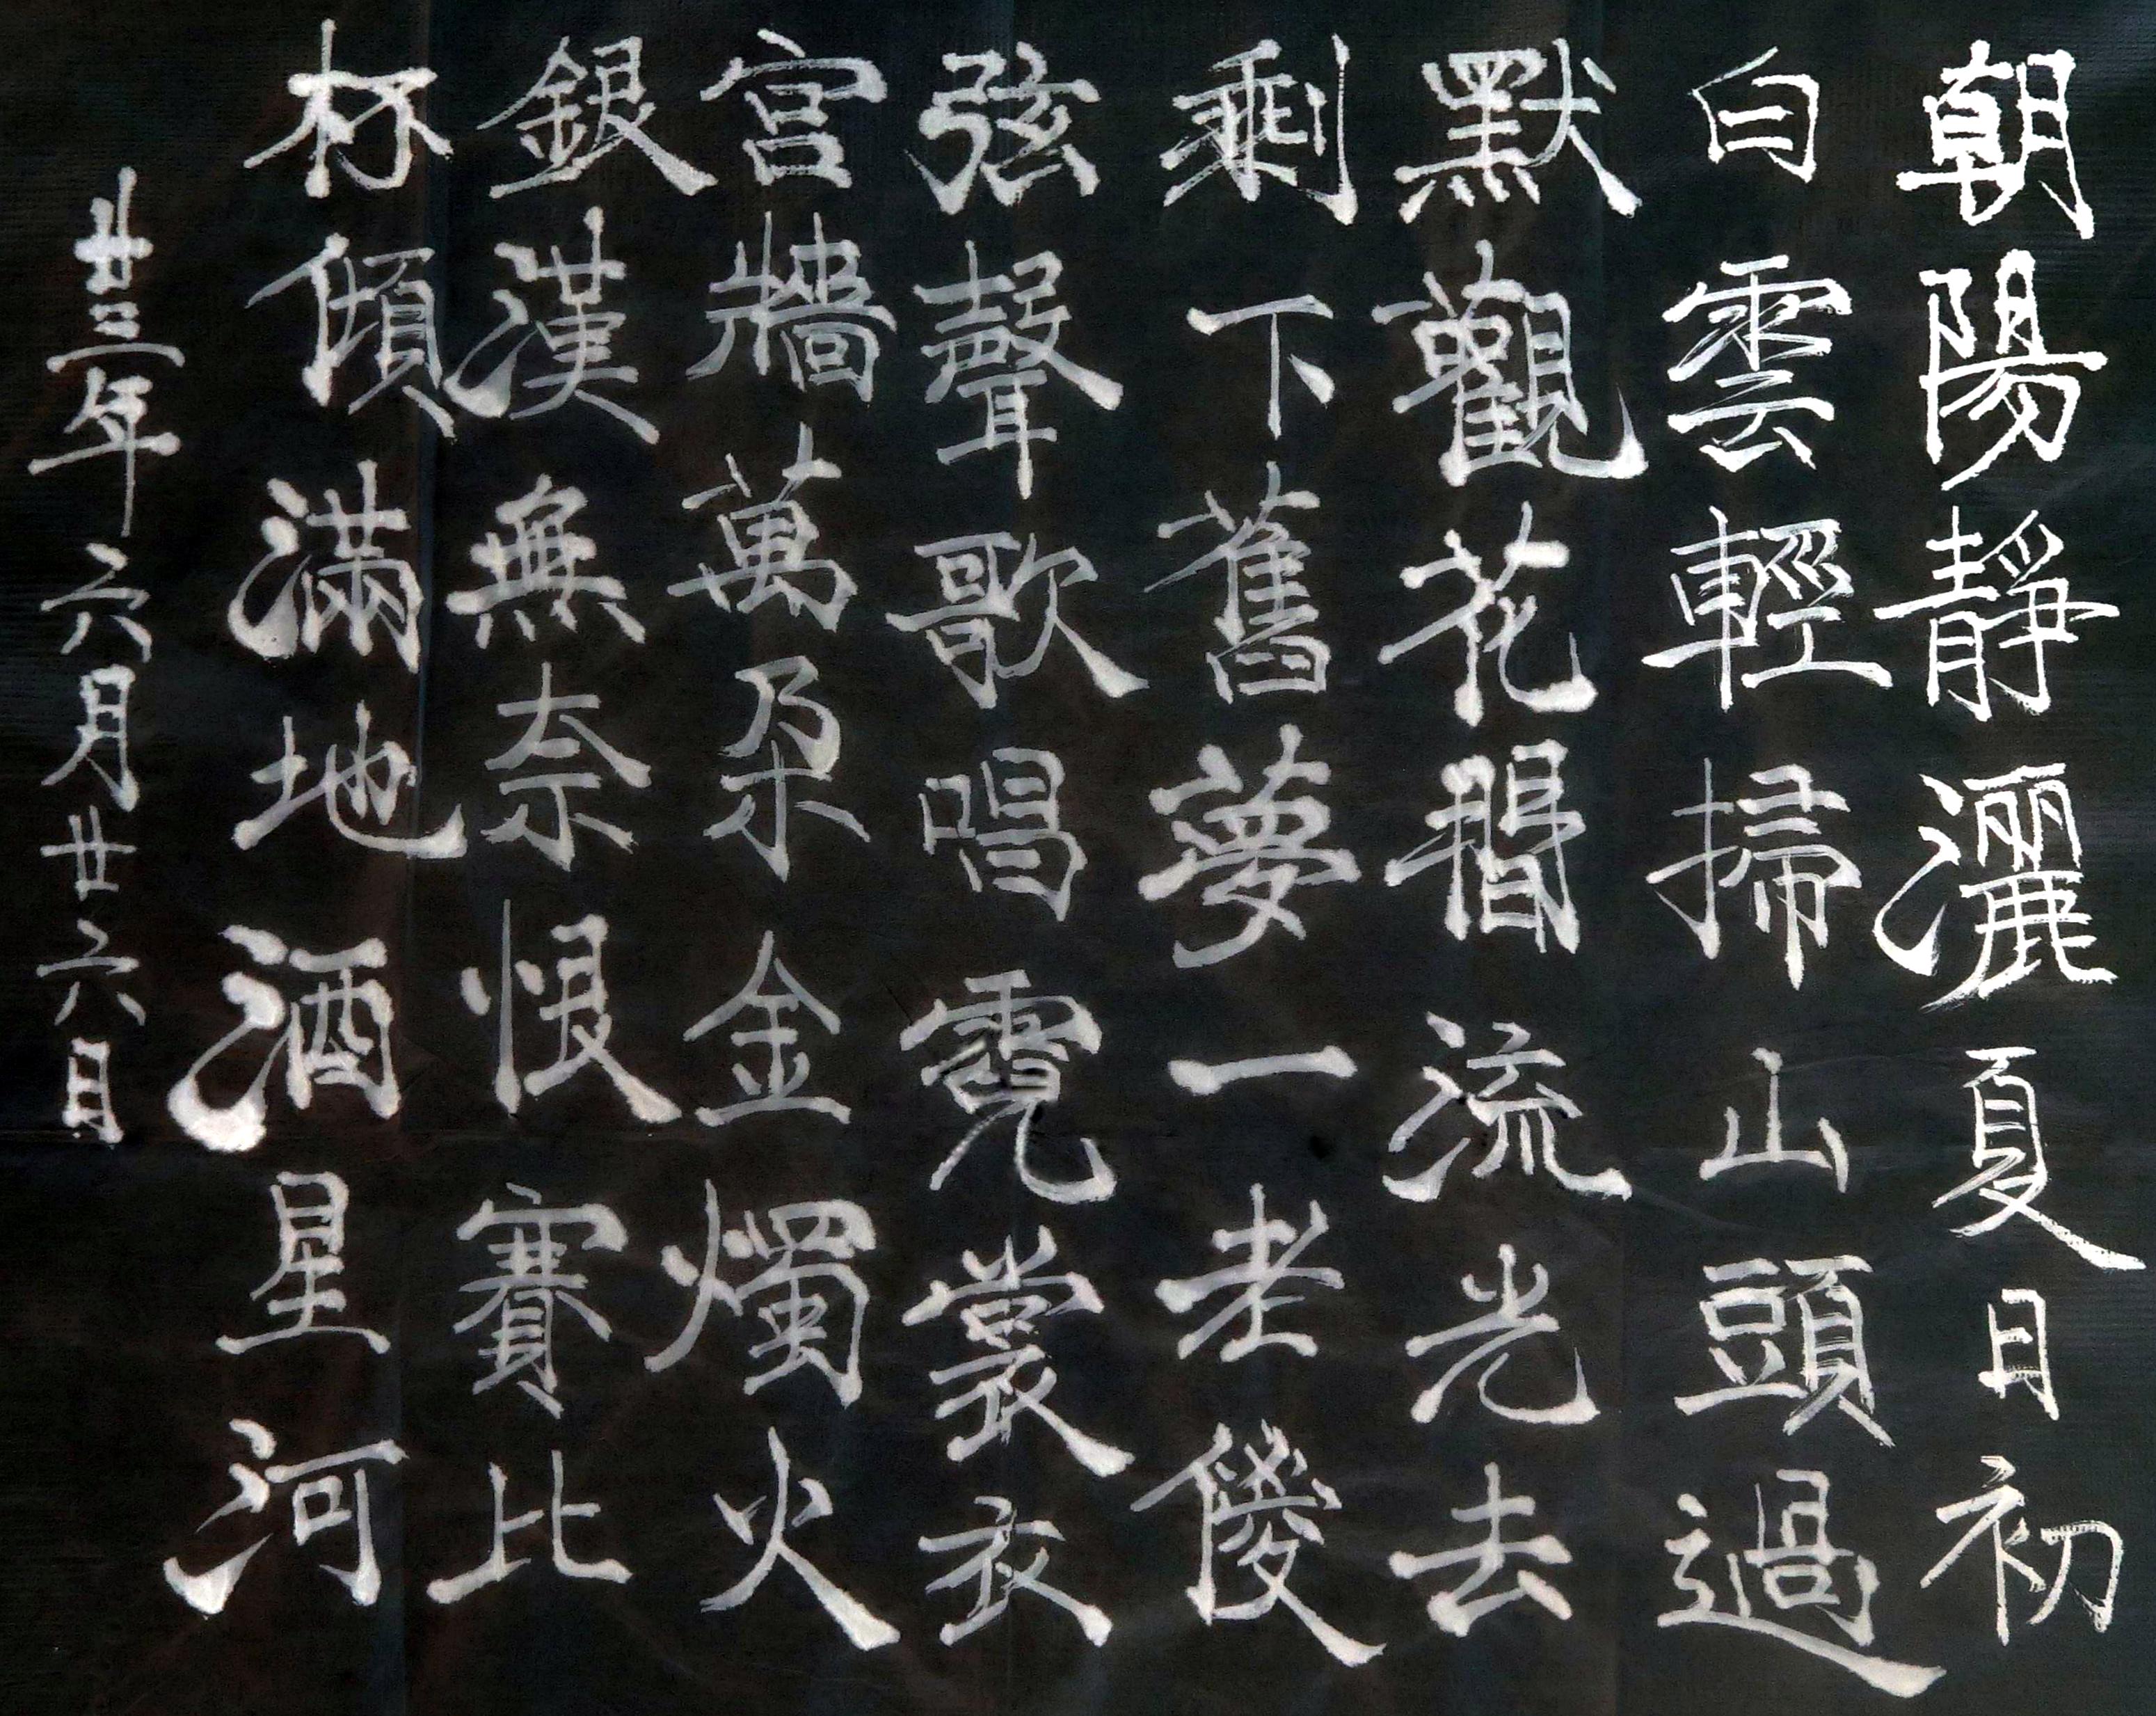 朝陽靜灑夏日初
白雲輕掃山頭過
默觀花間流光去
剩下舊夢一老傻
弦聲歌唱霓裳衣
宮牆萬朵金燭火
銀漢無奈恨賽比
杯傾滿地酒星河
廿三年六月廿六日